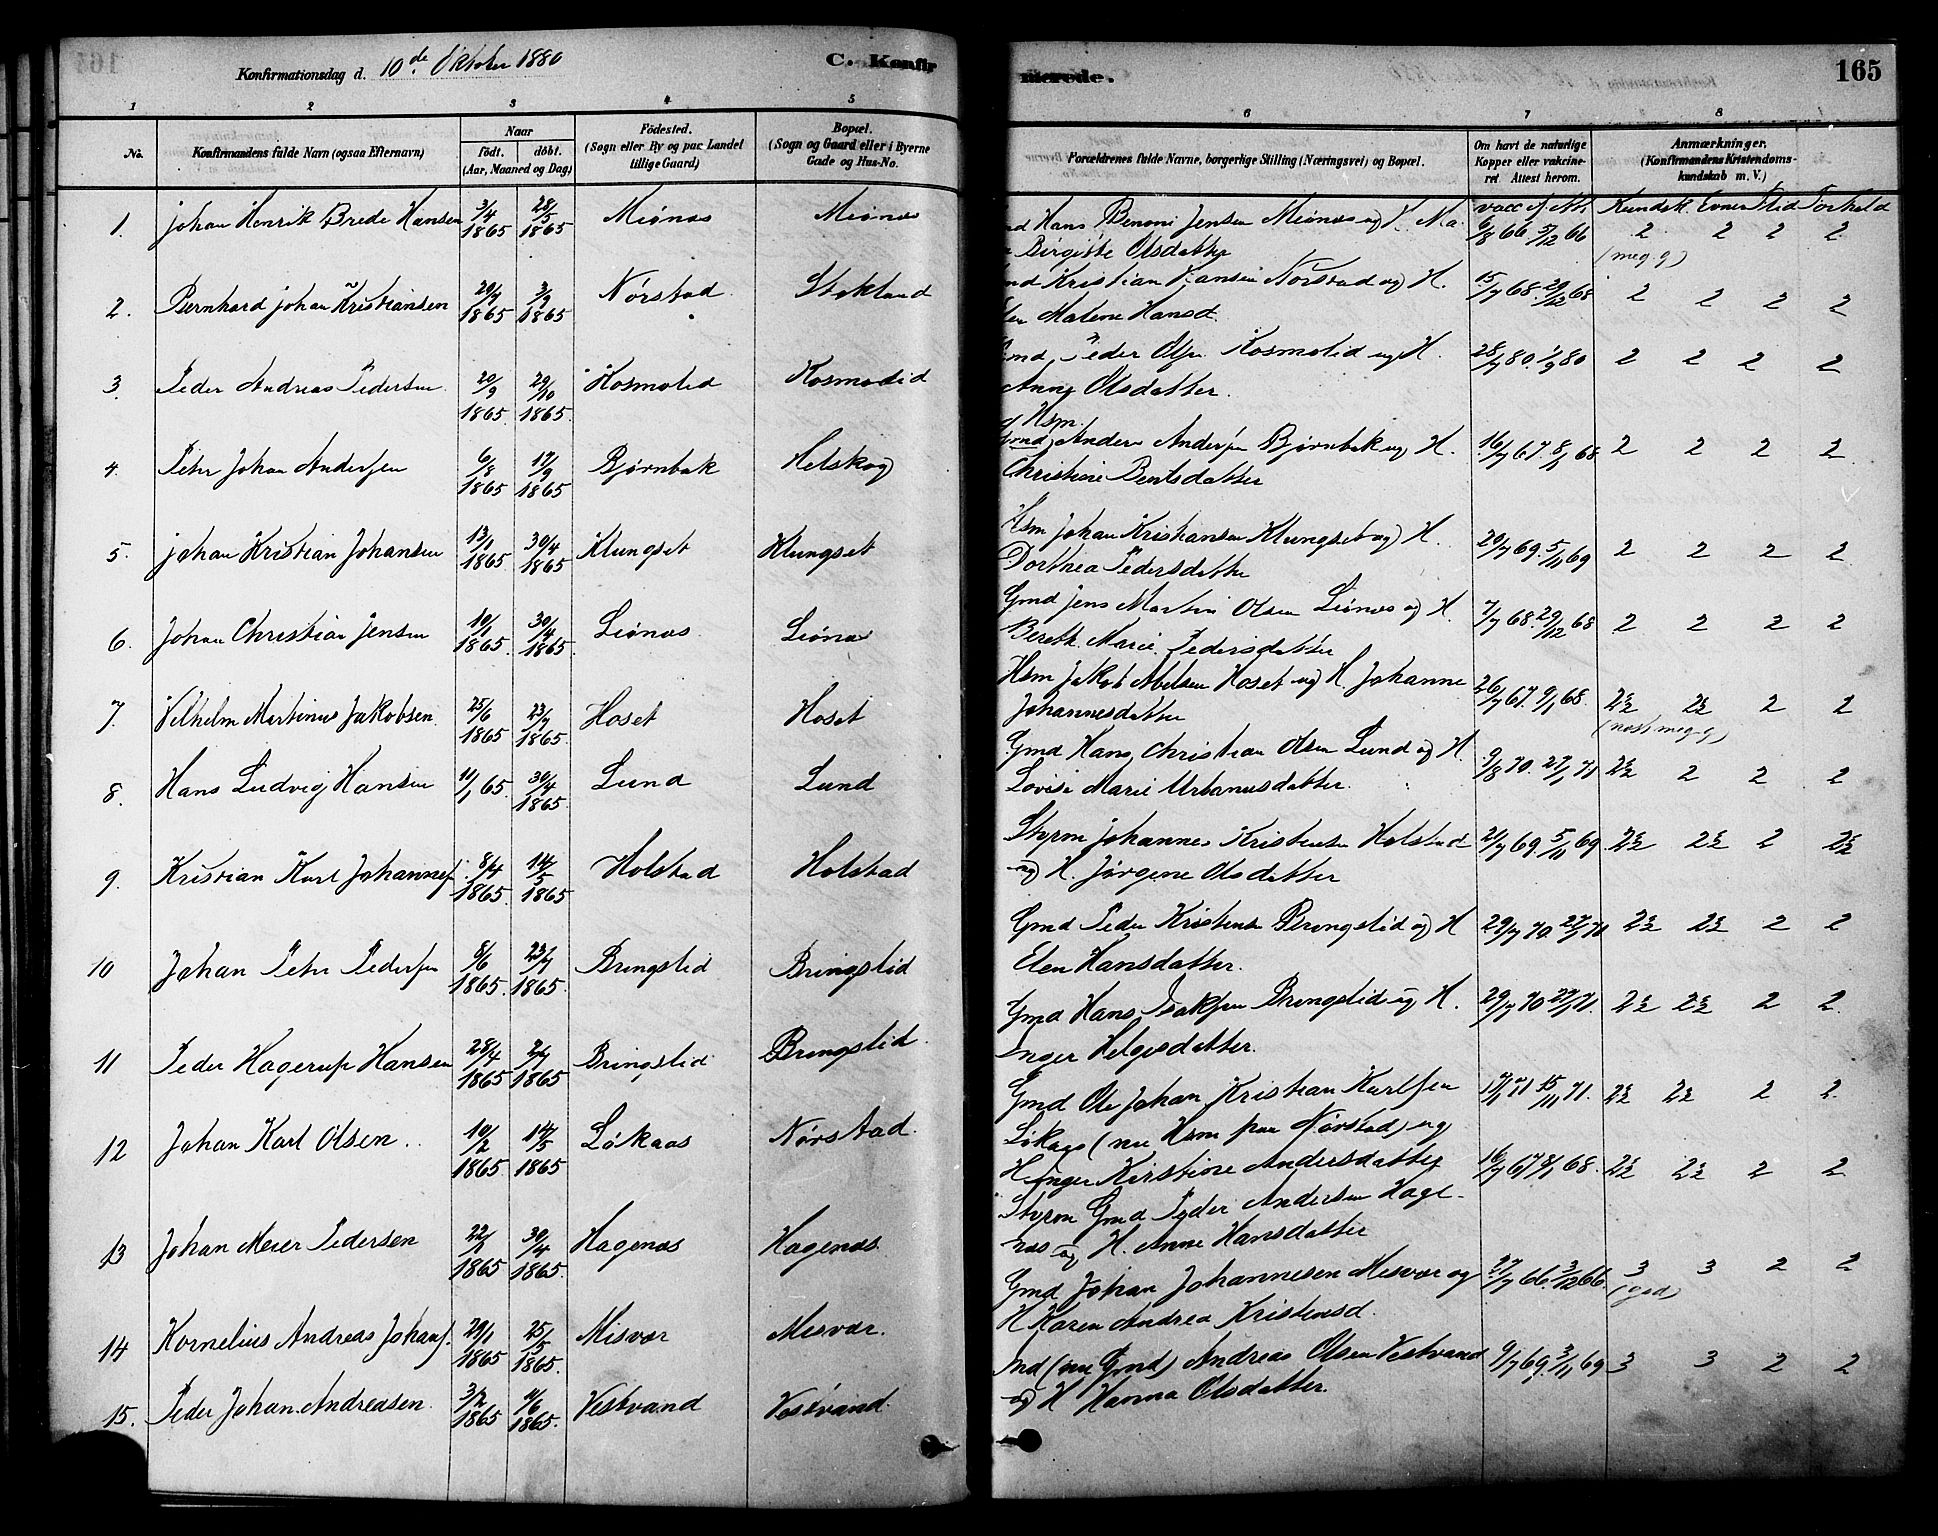 Konfirmationsdag d. 10de Oktober 1880
C. Konfir
merede.
165
1 2 3 4 5 6 7 8
No.
Konfirmandens fulde Navn (ogsaa Efternavn)
Naar
födt. döbt.
(Aar, Maaned og Dag)
Födested.
(Sogn eller By og paa Landet
tillige Gaard)
Bopæl.
(Sogn og Gaard eller i Byerne
Gade og Hus-No.
Forældrenes fulde Navne, borgerlige Stilling (Næringsvei) og Bopæl.
Om havt de naturlige
Kopper eller vakcine-
ret Attest herom.
Anmærkninger.
(Konfirmandens Kristendoms-
kundskab m. V.)
vacc. Kundsk. Evner Flid Forhold
1. Johan Henrik Brede Hansen 3/4 1865 28/5 1865 Miønes Miønes
Hans Benoni Jensen Miønes og H. Ma
Birgitte Olsdatter
6/8 66 5/12 66 2 2 2 2
(meg. g)
2. Bernhard Johan Kristiansen 29/4 1865 3/9 1865 Nørstad Stokland
Kristian Hansen Nørstad og H.
Malene Hansd.
15/7 68 29/12 68 2 2 2 2
3. Peder Andreas Pedersen 20/9 1865 29/10 1865 Kosmolid Kosmolid
Gmd Peder Olsen Kosmolid og H.
Anne Olsdatter.
28/7 80 1/9 80 2 2 2 2
4. Peter Johan Andersen 6/8 1865 17/9 1865 Bjørnbak Helskog
Hsm
Gmd Anders Andersen Bjørnbak og H.
Christine Bentsdatter
16/7 67 8/1 68 2 2 2 2
5. Johan Kristian Johansen 13/1 1865 30/4 1865 Klungset Klungset
Hsm Johan Kristiansen Klungset og H.
Dorthea Pedersdatter
20/7 69 5/11 69 2 2 2 2
6. Johan Christian Jensen 10/1 1865 30/4 1865 Liønes Liønes
Gmd Jens Martin Olsen Liønes og H.
Bereth Marie Pedersdatter
7/7 68 29/12 68 2 2 2 2
7. Vilhelm Martinus Jakobsen 25/6 1865 23/7 1865 Hoset Hoset
Hsm Jakob Abelsen Hoset og H. Johanne
Johannesdatter
26/7 67 9/1 68 2½ 2½ 2 2
(næst meg. g)
8. Hans Ludvig Hansen 11/1 65 30/4 1865 Lund Lund
Gmd Hans Christian Olsen Lund og H.
Lovise Marie Urbanusdatter.
9/8 70. 27/1 71 2½ 2 2 2
9. Kristian Karl Johannes. 8/4 1865 14/5 1865 Holstad Holstad
Styrm Johannes Kristensen Holstad
og H. Jørgene Olsdatter
21/7 69 5/11 69 2½ 2½ 2 2½
10 Johan Peter Pedersen 8/6 1865 23/7 1865 Bringslid Bringslid
Gmd Peder Kristensen Bringslid og H
Elen Hansdatter.
29/7 70 27/1 71 2½ 2½ 2 2
11 Peder Hagerup Hansen 28/4 1865 2/7 1865 Bringslid Bringslid
Gmd Hans Isaksen Bringslid og H.
Inger Helgesdatter.
29/7 70 27/1 71. 2½ 2½ 2 2
12 Johan Karl Olsen. 10/2 1865 14/5 1865 Løkaas Nørstad
Gmd Ole Johan Kristian Karlsen
Løkaas (nu Hsm paa Nørstad) og
H. Inger Kirstine Andersdatter
17/7 71 15/11 71. 2½ 2½ 2 2
13 Johan Meier Pedersen 22/1 1865 30/4 1865 Hagenæs Hagenæs
Styrm Gmd Peder Andersen Hage-
næs og H. Anne Hansdatter
16/7 67 8/1 68. 2½ 2½ 2 2
14 Kornelius Andreas Johans. 29/1 1865 25/5 1865 Misvær Misvær.
Gmd Johan Johannesen Misvær og
H Karen Andrea Kristensd.
27/7 66. 3/12 66. 3 3 2 2
(god)
15. Peder Johan Andreasen 3/2 1865 4/6 1865 Vestvand Vestvand.
Ind (nu Gmd) Andreas Olsen Vestvand
og H Hanna Olsdatter.
9/7 69. 3/11 69 3 3 2 2